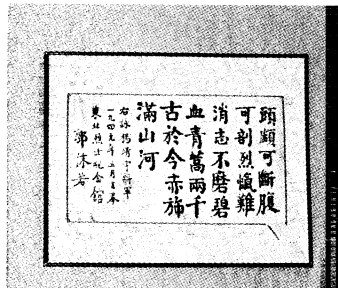 頭顱可斷腹
可剖烈愾難
消志不磨碧
血青蒿兩千
古於今赤旆
滿山河
右詠楊靖宇將軍
一九四九年五月五日參
東北烈士紀念館
郭沫若